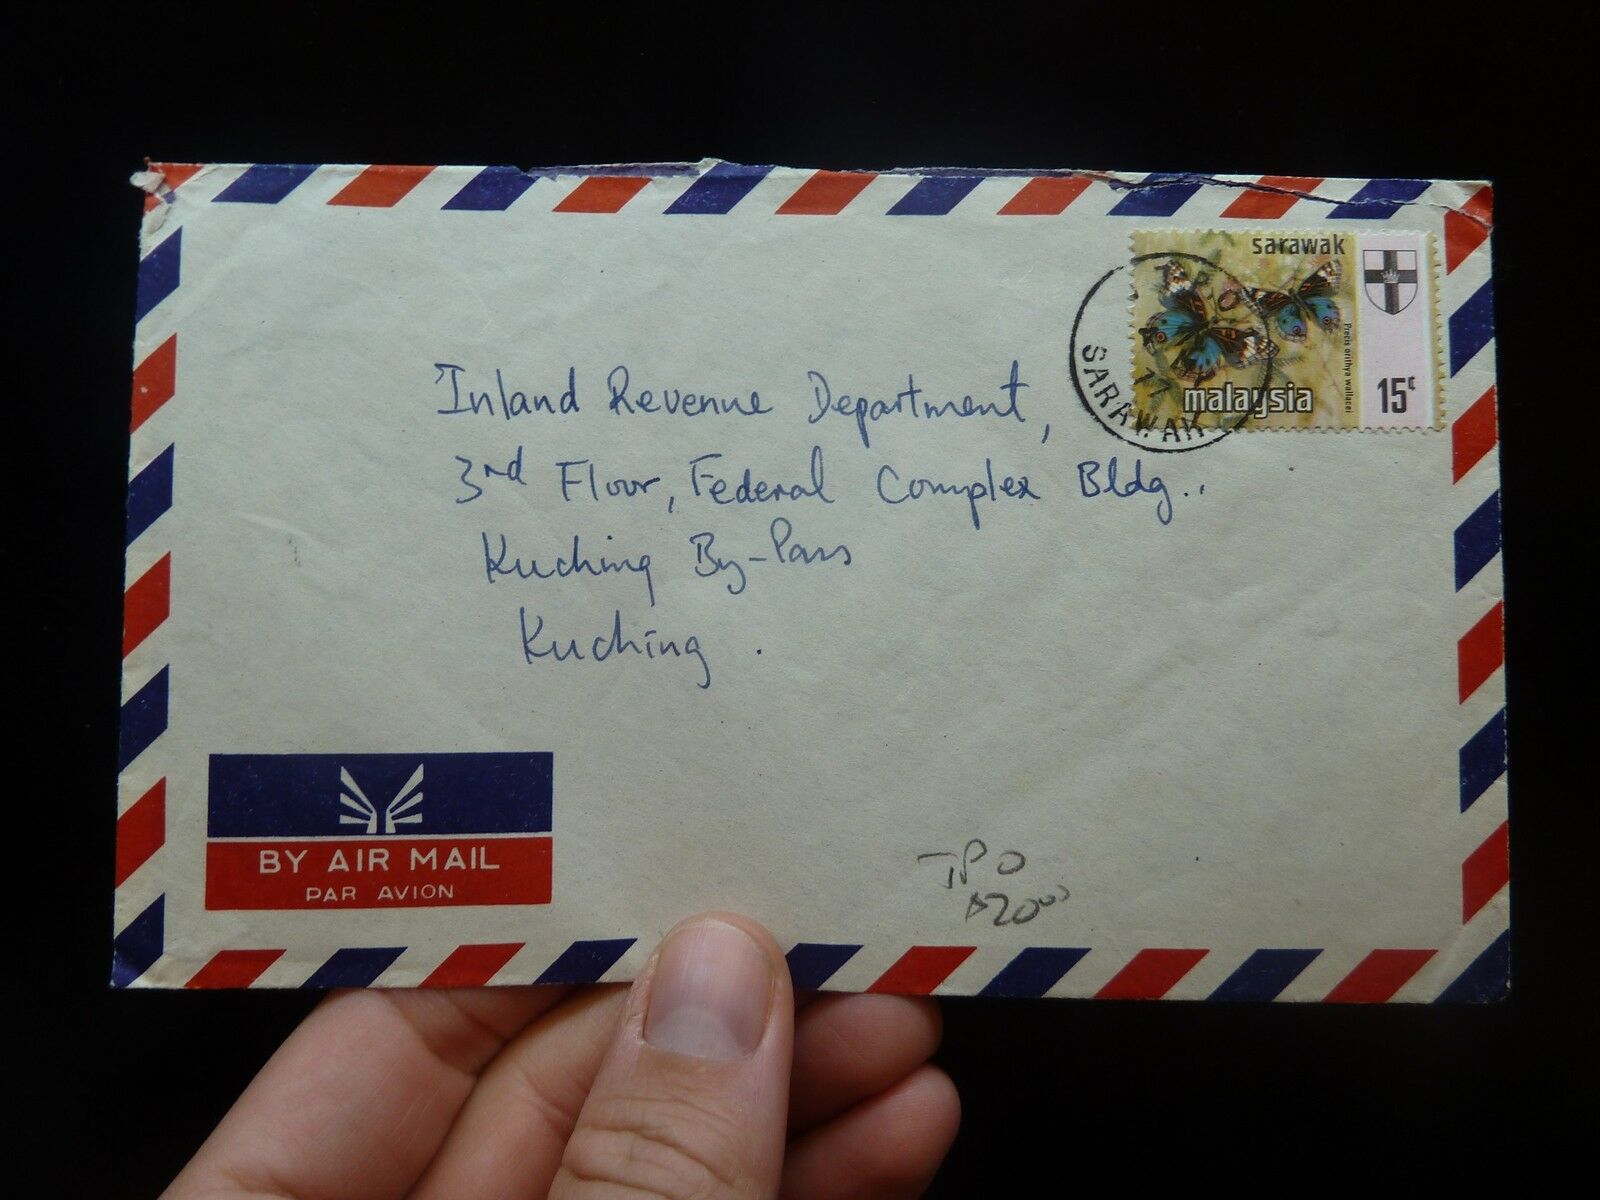 sarawak
Precis orithya wallacei
malaysia
15¢
SARAWAK
Inland Revenue Department,
3rd Floor, Federal Complex Bldg.,
Kuching By-Pass
Kuching.
BY AIR MAIL
PAR AVION
TPO
$20.00